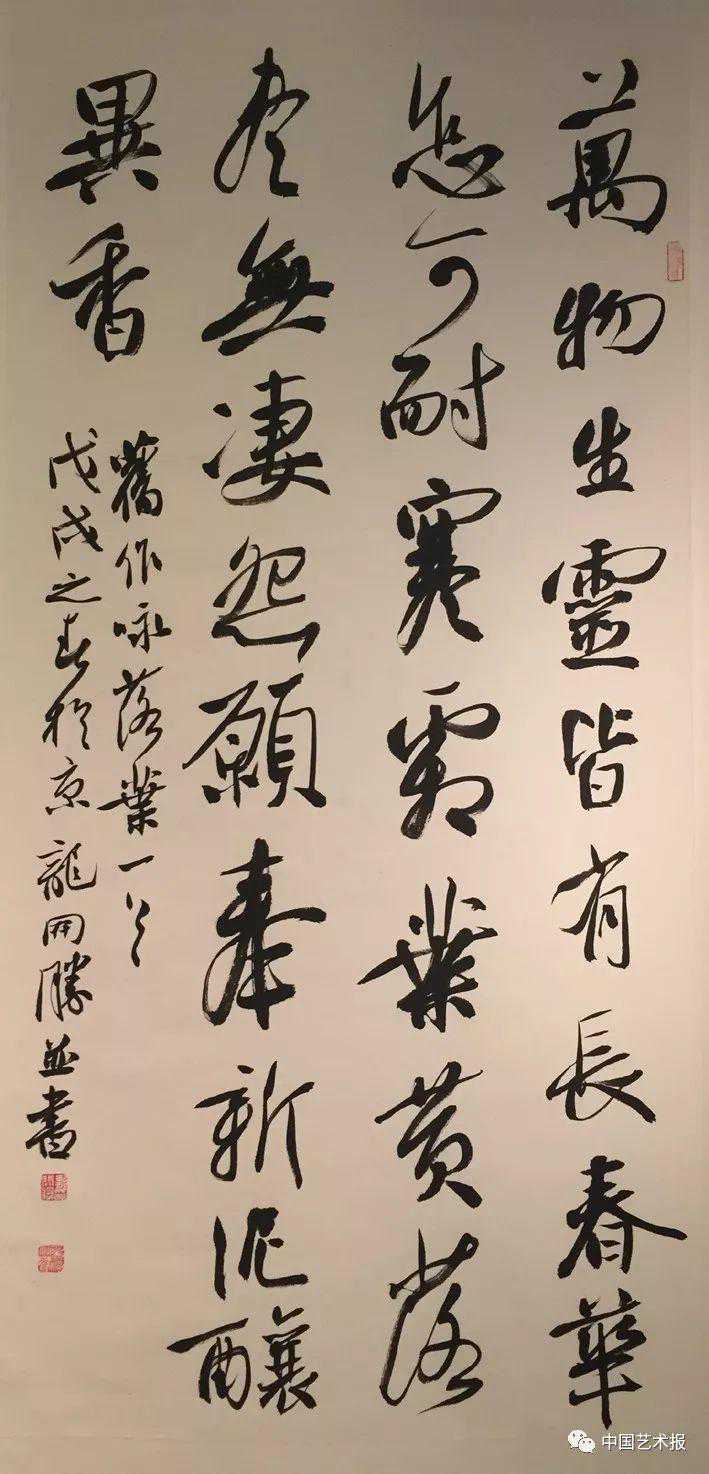 萬物生靈皆有長春華
怎可耐寒霜葉黃落
尽無凄怨願奉新泥釀
異香
舊作咏落葉一首
戊戌之春於京龍開勝並書
中国艺术报